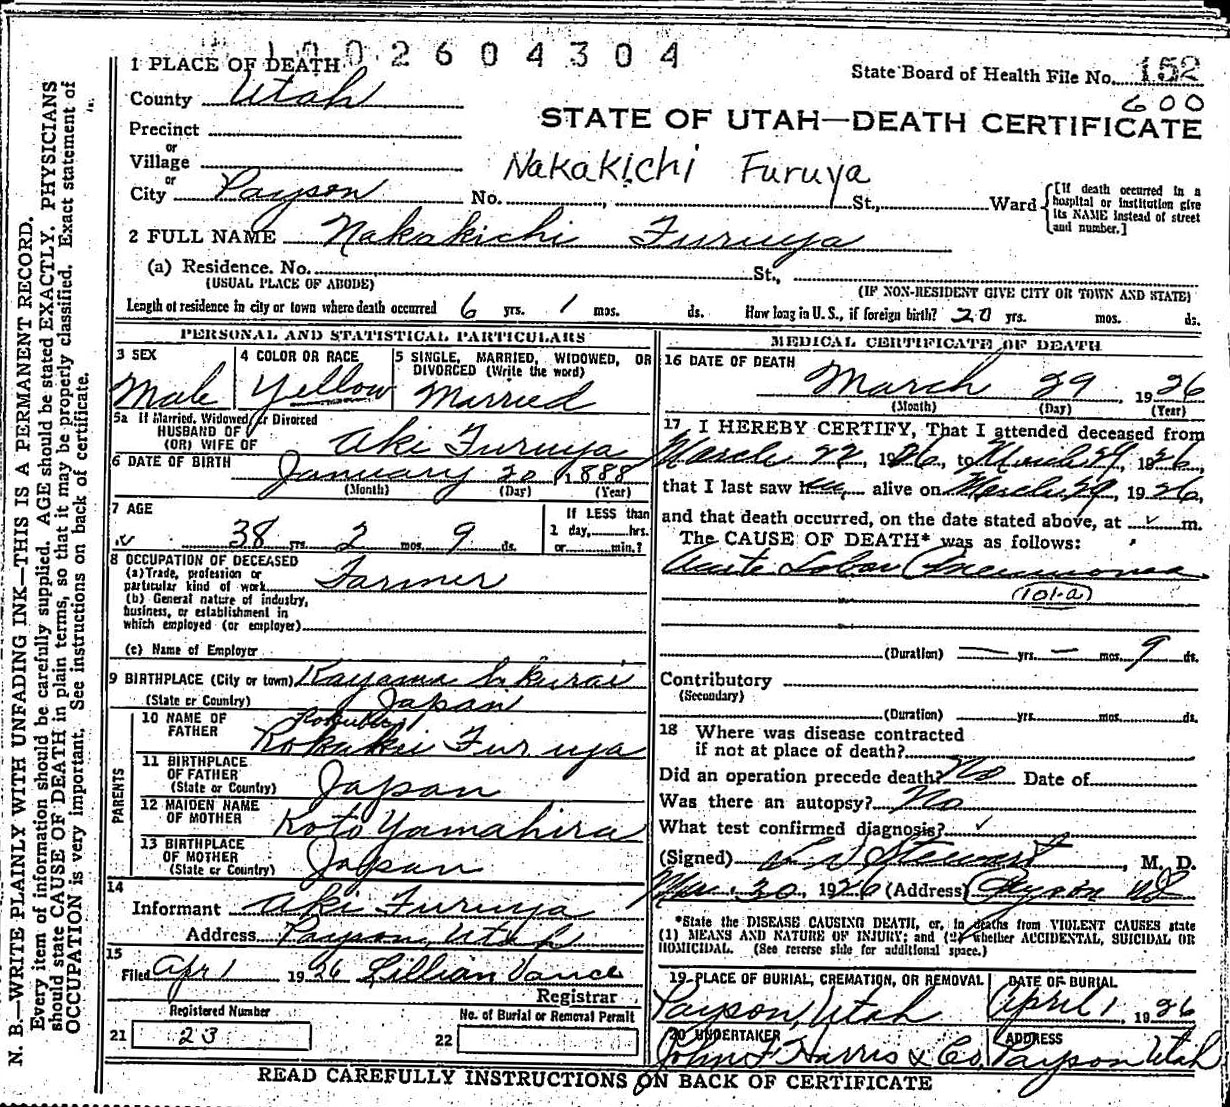 1002604304
State Board of Health File No. 152
600
1 PLACE OF DEATH
County Utah
STATE OF UTAH—DEATH CERTIFICATE
Precinct
or
Village
Nakakichi Furuya
or
City Payson No. , St., Ward {[If death occurred in a hospital or institution give its NAME instead of street and number.]
2 FULL NAME Nakakichi Furuya
(a) Residence. No. St.,
(USUAL PLACE OF ABODE) (IF NON-RESIDENT GIVE CITY OR TOWN AND STATE)
Length of residence in city or town where death occurred 6 yrs. 1 mos. ds. How long in U. S., if foreign birth? 20 yrs. mos. ds.
PERSONAL AND STATISTICAL PARTICULARS
3 SEX
Male
4 COLOR OR RACE
Yellow
5 SINGLE, MARRIED, WIDOWED, OR
DIVORCED (Write the word)
Married
5a If Married, Widowed, or Divorced
HUSBAND OF
(OR) WIFE OF Aki Furuya
6 DATE OF BIRTH January 20, 1888
(Month) (Day) (Year)
7 AGE
38 yrs. 2 mos. 9 ds.
If LESS than
1 day, hrs.
or min.?
8 OCCUPATION OF DECEASED
(a) Trade, profession or
particular kind of work Farmer
(b) General nature of industry,
business, or establishment in
which employed (or employer)
(c) Name of Employer
9 BIRTHPLACE (City or town)
(State or Country) Japan
PARENTS
10 NAME OF
FATHER Furuya
11 BIRTHPLACE
OF FATHER
(State or Country) Japan
12 MAIDEN NAME
OF MOTHER Koto Yamahira
13 BIRTHPLACE
OF MOTHER
(State or Country) Japan
14
Informant Aki Furuya
Address Payson, Utah
15
Filed Apr 1 1926 Lillian Vance
Registrar
Registered Number
21 23
No. of Burial or Removal Permit
22
MEDICAL CERTIFICATE OF DEATH
16 DATE OF DEATH
March 29 1926
(Month) (Day) (Year)
17 I HEREBY CERTIFY, That I attended deceased from
March 22, 1926, to March 29, 1926,
that I last saw him alive on March 29, 1926,
and that death occurred, on the date stated above, at m.
The CAUSE OF DEATH* was as follows:
Acute Lobar Pneumonia
(101-a)
(Duration) — yrs. — mos. 9 ds.
Contributory
(Secondary)
(Duration) yrs. mos. ds.
18 Where was disease contracted
if not at place of death?
Did an operation precede death? No Date of
Was there an autopsy? No
What test confirmed diagnosis?
(Signed) Stewart, M. D.
Mar. 30, 1926 (Address) Payson Ut
*State the DISEASE CAUSING DEATH, or, in deaths from VIOLENT CAUSES state
(1) MEANS AND NATURE OF INJURY; and (2) whether ACCIDENTAL, SUICIDAL OR
HOMICIDAL. (See reverse side for additional space.)
19 PLACE OF BURIAL, CREMATION, OR REMOVAL
Payson, Utah
DATE OF BURIAL
April 1, 1926
20 UNDERTAKER
John F Harris & Co.
ADDRESS
Payson Utah
READ CAREFULLY INSTRUCTIONS ON BACK OF CERTIFICATE
N. B.—WRITE PLAINLY WITH UNFADING INK—THIS IS A PERMANENT RECORD.
Every item of information should be carefully supplied. AGE should be stated EXACTLY. PHYSICIANS
should state CAUSE OF DEATH in plain terms, so that it may be properly classified. Exact statement of
OCCUPATION is very important. See instructions on back of certificate.